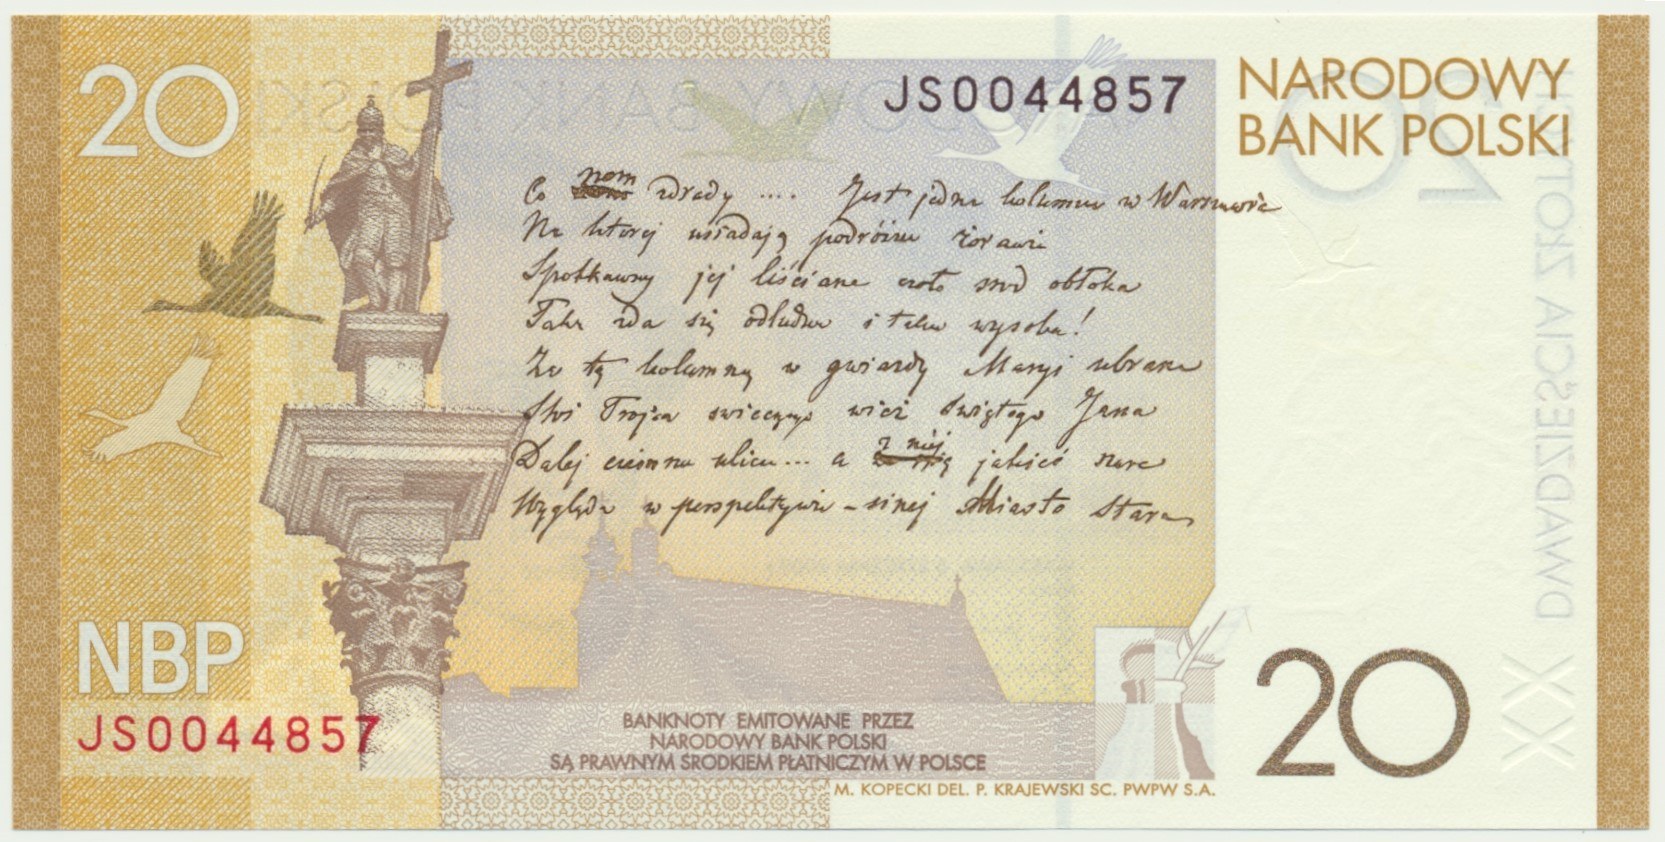 20
JS0044857
NARODOWY
BANK POLSKI
Co nam zdrady .... Jest jedna kolumna w Warszawie
Na ktorej usiadają podróżne żorawie
Spotkawszy jej liściane czoło srod obłoka
Taka zda się odludna i taka wysoka!
Za tą kolumną w gwiazdy Maryi ubrana
Stoi Trojca swiecących wież Swiętego Jana
Dalej ciemna ulica... a z niej jakieś szare
Wygląda w perspektywie - sinej Miasto Stare
NBP
JS0044857
BANKNOTY EMITOWANE PRZEZ
NARODOWY BANK POLSKI
SĄ PRAWNYM ŚRODKIEM PŁATNICZYM W POLSCE
M. KOPECKI DEL. P. KRAJEWSKI SC. PWPW S.A.
20
XX
DWADZIEŚCIA ZŁOTYCH